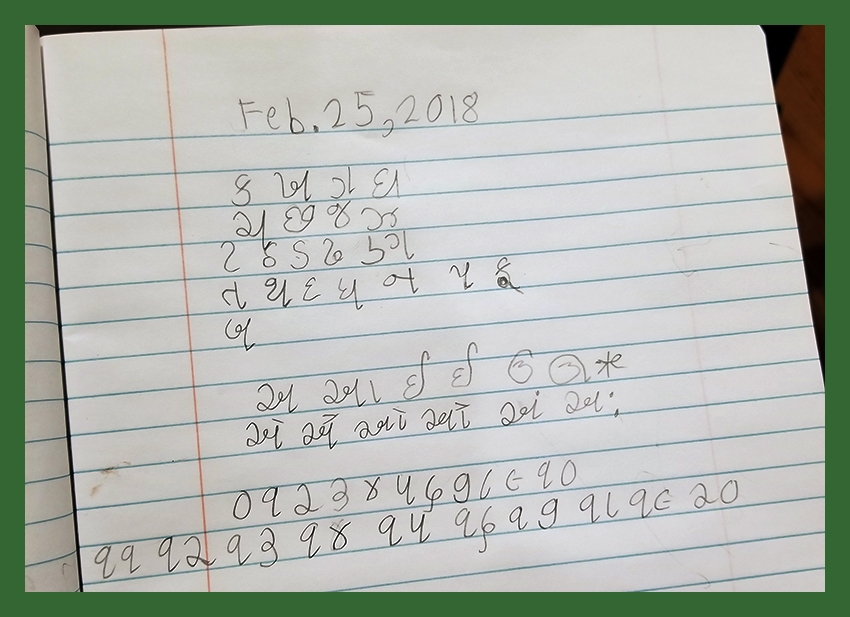 Feb. 25, 2018
ક ખ ગ ઘ
ચ છ જ ઝ
ટ ઠ ડ ઢ ણ
ત થ દ ધ ન પ ફ
બ
અ આ ઈ ઈ ઉ ઊ *
અે અૈ ઓ ઔ અં અઃ
૦ ૧ ૨ ૩ ૪ ૫ ૬ ૭ ૮ ૯ ૧૦
૧૧ ૧૨ ૧૩ ૧૪ ૧૫ ૧૬ ૧૭ ૧૮ ૧૯ ૨૦